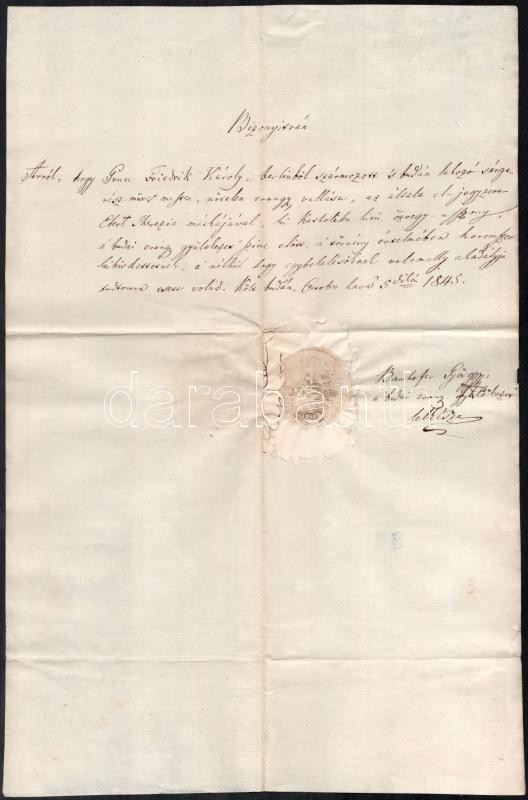 Bizonyitván
Arról, hogy Grun Friedrik Károly, berlinből származott és budán lakozó sárga-
réz míves mester, nőtelen evang. vallásu, az általa el-jegyzett
Ebert Therezia máskájával, ki katholika hitü özvegy-asszony,
a budai evang. gyülekezet szine előtt, a törvény értelmében háromszor
kihirdettetvék, a nélkül hogy egybekelésöknek valamelly akadálya
tudtomra esett volna. Költ budán, October hava 5 dikén 1845.
darabanth.com
Bauhofer György,
a budai evang. gyülekezet
lelkésze